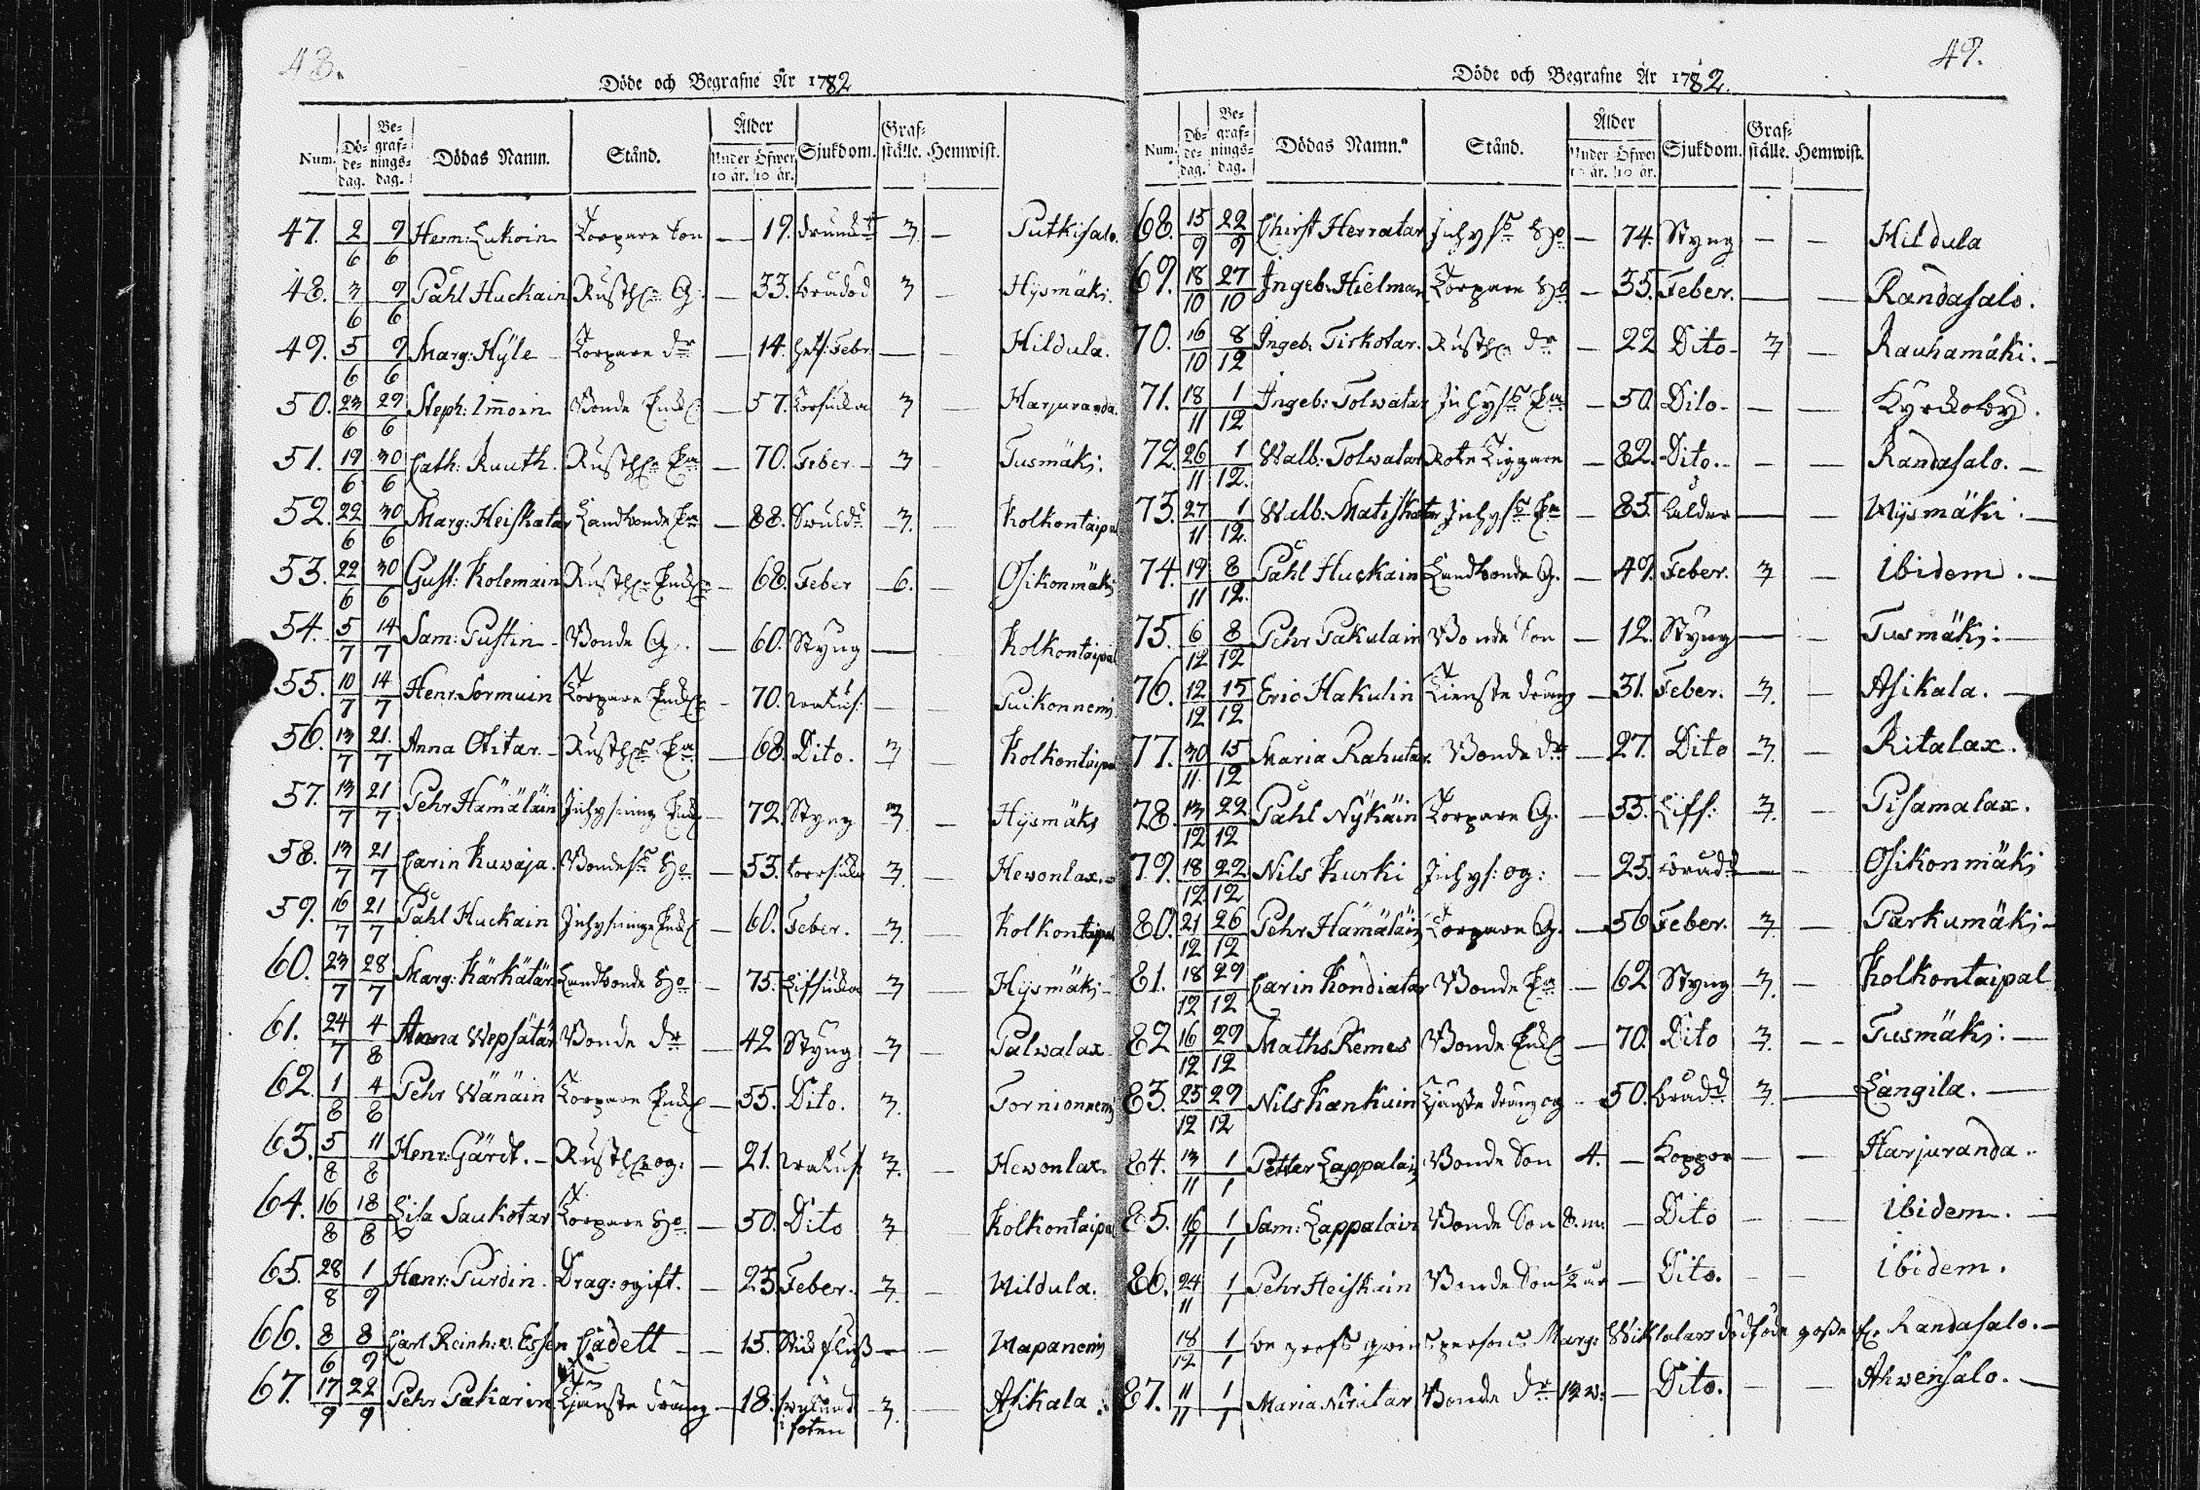 48.
Döde och Begrafne År 1782
Num. Dö-de-dag. Be-graf-nings-dag. Dödas Namn. Stånd. Ålder Under 10 år. Öfwer 10 år. Sjukdom. Graf-ställe. Hemwist.
47. 2/6 9/6 Herm: Lukoin Torpare son — 19. 3 — Putkisalo.
48. 3/6 9/6 Påhl Huckain Rusth: G. — 33. brådöd 3 — Hysmäki.
49. 5/6 9/6 Marg: Hyle Torpare dr — 14. Febr. — — Hildula.
50. 23/6 29/6 Steph: Immoin Bonde Enkl. — 57. 3 — Harjuranda.
51. 19/6 30/6 Cath: Ruuth. Rusth: Ea — 70. Feber — 3 Tusmäki.
52. 22/6 30/6 Marg: Heiskatar Landbonde Ea — 88. 3. Kolkontaipal
53. 22/6 30/6 Gust: Kolemain Rusth: Enkl. — 68. Feber 6. — Osikonmäki
54. 5/7 14/7 Sam: Pustin Bonde G. — 60. Styng — Kolkontaipal
55. 10/7 14/7 Henr: Sormuin Torpare Enkl. — 70. — Puikonnemi
56. 13/7 21/7 Anna Ohtar. Rusth: Ea — 68. Dito. 3 — Kolkontaipal
57. 13/7 21/7 Pehr Hämäläin Inhysning Enkl — 72. Styng 3. — Hysmäki
58. 13/7 21/7 Carin Kuwaja. Bonde Ho — 53. 3. — Hewonlax.
59. 16/7 21/7 Påhl Huckain Inhysninge Enkl — 60. Feber. 3. — Kolkontaipal
60. 23/7 28/7 Marg: Kärkätär Landbonde Ho — 75. 3 — Hysmäki
61. 24/7 4/8 Anna Wepsätär Bonde dr — 42 Styng 3 — Palwalax
62. 1/8 4/8 Pehr Wänäin Torpare Enkl — 55. Dito. 3. Tornionnemi
63. 5/8 11/8 Henr: Gärdt. Rusth: og: — 21. 3. — Hewonlax.
64. 16/8 18/8 Lisa Saukotar Torpare Ho — 50. Dito 3 Kolkontaipal
65. 28/8 1/9 Henr: Purdin. Drag: ogift. — 23. Feber. 3. — Hildula.
66. 8/6 8/9 Carl Reinh: v. Essen Cadett — 15. — — Wapanemi
67. 17/9 22/9 Pehr Pakarin Tjenste dräng — 18. i foten 3. — Asikala
49.
Döde och Begrafne År 1782.
Num. Dö-de-dag. Be-graf-nings-dag. Dödas Namn. Stånd. Ålder Under 10 år. Öfwer 10 år. Sjukdom. Graf-ställe. Hemwist.
68. 15/9 22/9 Christ Herratar Inhys Ho — 74. Styng — — Hildula
69. 18/10 27/10 Ingeb: Hielman Torpare Ho — 35. Feber. — — Randasalo.
70. 16/10 8/12 Ingeb. Tirkotar. Rusth: dr — 22 Dito — 3 — Rauhamäki.
71. 18/11 1/12 Ingeb: Tolwatar Inhys Ea — 50. Dito — — Kyrckoby.
72. 26/11 1/12. Walb: Tolwatar Rote Tiggare — 82. Dito. — — Randasalo.
73. 27/11 1/12. Walb: Matiskatar Inhys Ea — 83. ålder — — Hysmäki.
74. 19/11 8/12. Påhl Huckain Landbonde G. — 49. Feber. 3 — Ibidem.
75. 6/12 8/12 Pehr Pakulain Bonde Son — 12. Styng — — Tusmäki:
76. 12/12 15/12 Eric Hakulin Tienste dräng — 31. Feber. 3. — Asikala.
77. 30/11 15/12 Maria Rahutar. Bonde dr — 27. Dito 3. — Ritalax.
78. 13/12 22/12 Påhl Nykäin Torpare G. — 55. 3. — Pisamalax.
79. 18/12 22/12 Nils Kurki Inhys: og: — 25. bråd — — Osikonmäki
80. 21/12 26/12 Pehr Hämäläin Torpare G. — 56 Feber. 3. — Parkumäki
81. 18/12 29/12 Carin Kondiatar Bonde Ea — 62 Styng 3. — Kolkontaipal
82 16/12 29/12 Maths Remes Bonde Enkl — 70. Dito 3. — Tusmäki:
83. 25/12 29/12 Nils Kankuin Tjenste dräng og — 50. bråd 3. — Langila.
84. 13/11 1/1 Petter Lappalain Bonde Son 4. — Koppor — — Harjuranda.
85. 16/11 1/1 Sam: Lappalain Bonde Son 8. m: — Dito — — Ibidem.
86. 24/11 1/1 Pehr Heiskain Bonde Son 1/2 år — Dito. — — Ibidem.
18/12 1/1 Marg: dödföde gosse Randasalo.
87. 11/11 1/1 Maria Niritar Bonde dr 12 w: — Dito. — — Ahwensalo.